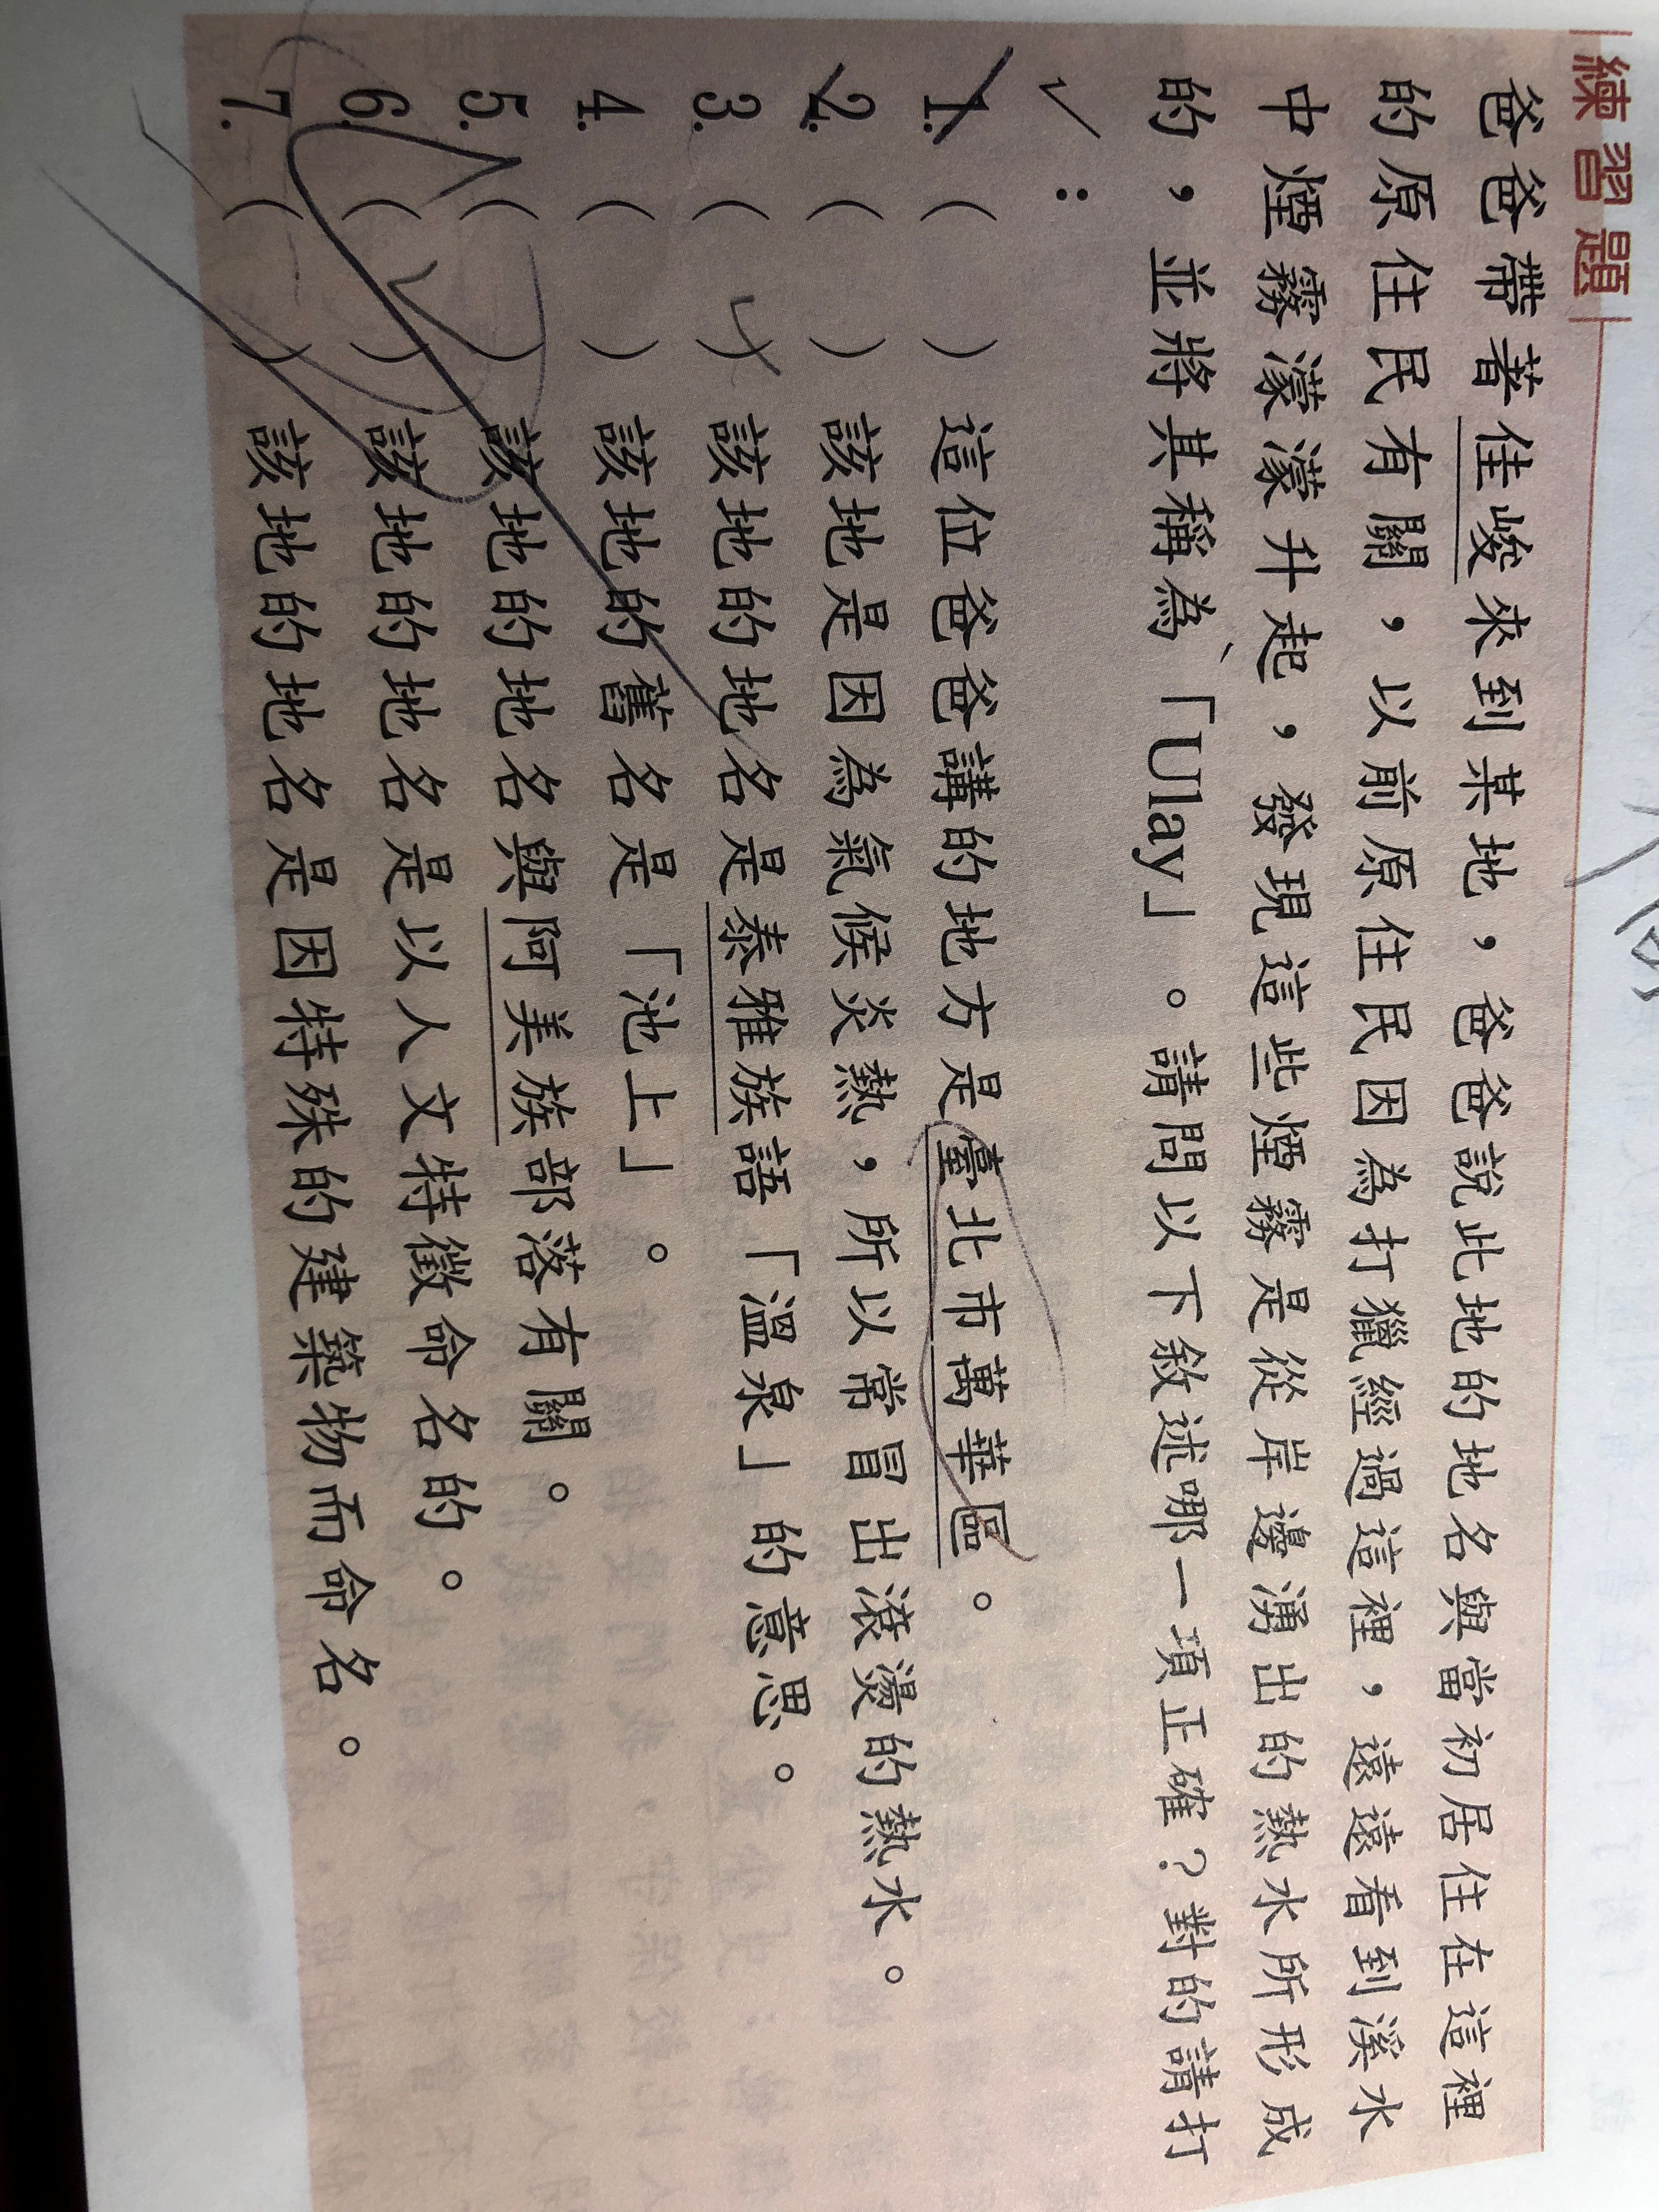 練習題
爸爸帶著佳峻來到某地，爸爸說此地的地名與當初居住在這裡
的原住民有關，以前原住民因為打獵經過這裡，遠遠看到溪水
中煙霧濛濛升起，發現這些煙霧是從岸邊湧出的熱水所形成
的，並將其稱為「Ulay」。請問以下敘述哪一項正確？對的請打
✓：
1.（　）這位爸爸講的地方是臺北市萬華區。
2.（　）該地是因為氣候炎熱，所以常冒出滾燙的熱水。
3.（　）該地的地名是泰雅族語「溫泉」的意思。
4.（　）該地的舊名是「池上」。
5.（　）該地的地名與阿美族部落有關。
6.（✓）該地的地名是以人文特徵命名的。
7.（　）該地的地名是因特殊的建築物而命名。